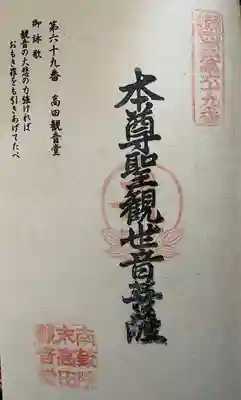 第六十九番 高田観音堂
御詠歌
観音の大悲の力強ければ
おもき罪をも引きあげてたべ
本尊聖観世音菩薩